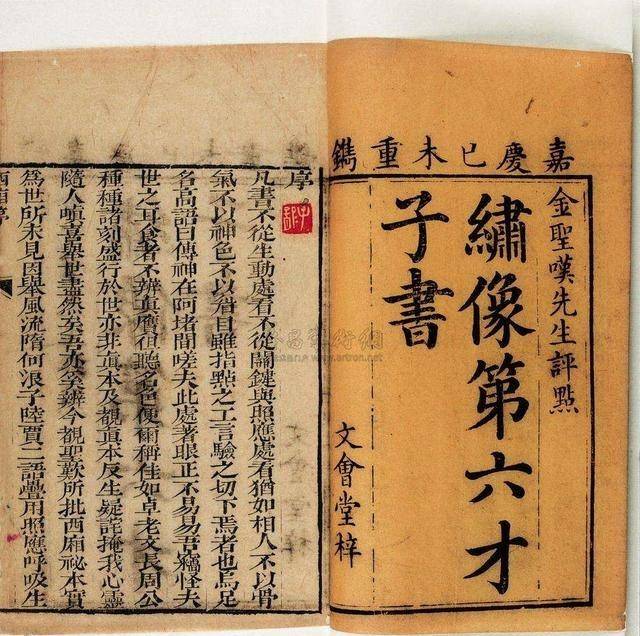 嘉慶已未重鐫
金聖嘆先生評點
繡像第六才
子書
文會堂梓
序
凡書不從生動處看不從關鍵與照應處看猶如相人不以骨
氣不以神色不以眉目雖指點之工言驗之切下焉者也烏足
名高語曰傳神在阿堵間嗟夫此處著眼正不易易吾竊怪夫
世之耳食者不辨眞贋但聽名色便爾稱佳如卓老文長周公
種種諸刻盛行於世亦非眞本及覩眞本反生疑詫掩我心靈
隨人嗔喜舉世盡然矣吾亦奚辨今覩聖歎所批西廂祕本實
爲世所未見因舉風流隋何浪子陸賈二語疊用照應呼吸生